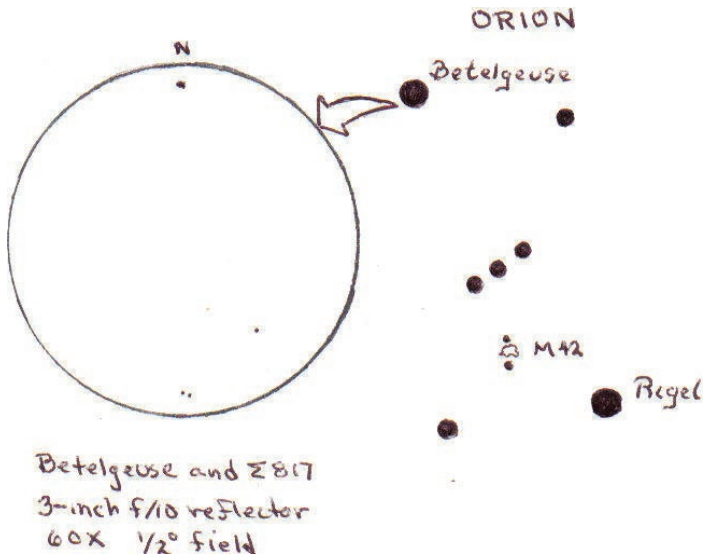 ORION
N
Betelgeuse
M42
Rigel
Betelgeuse and Σ817
3-inch f/10 reflector
60X 1/2° field